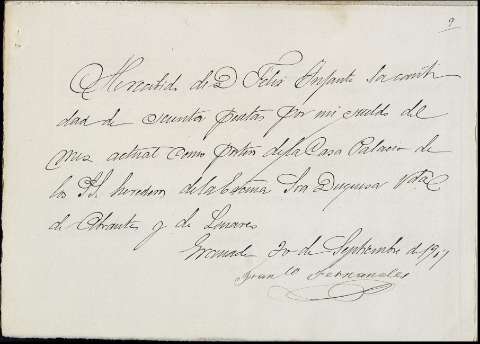 9
He recibido de D Felix Infante la canti
dad de sesenta pesetas por mi sueldo del
mes actual como portero de la Casa Palacio de
los S.S. herederos de la Excma Sra Duquesa Vda
de Abrantes y de Linares
Granada 30 de Septiembre de 1911
Franco Fernandez